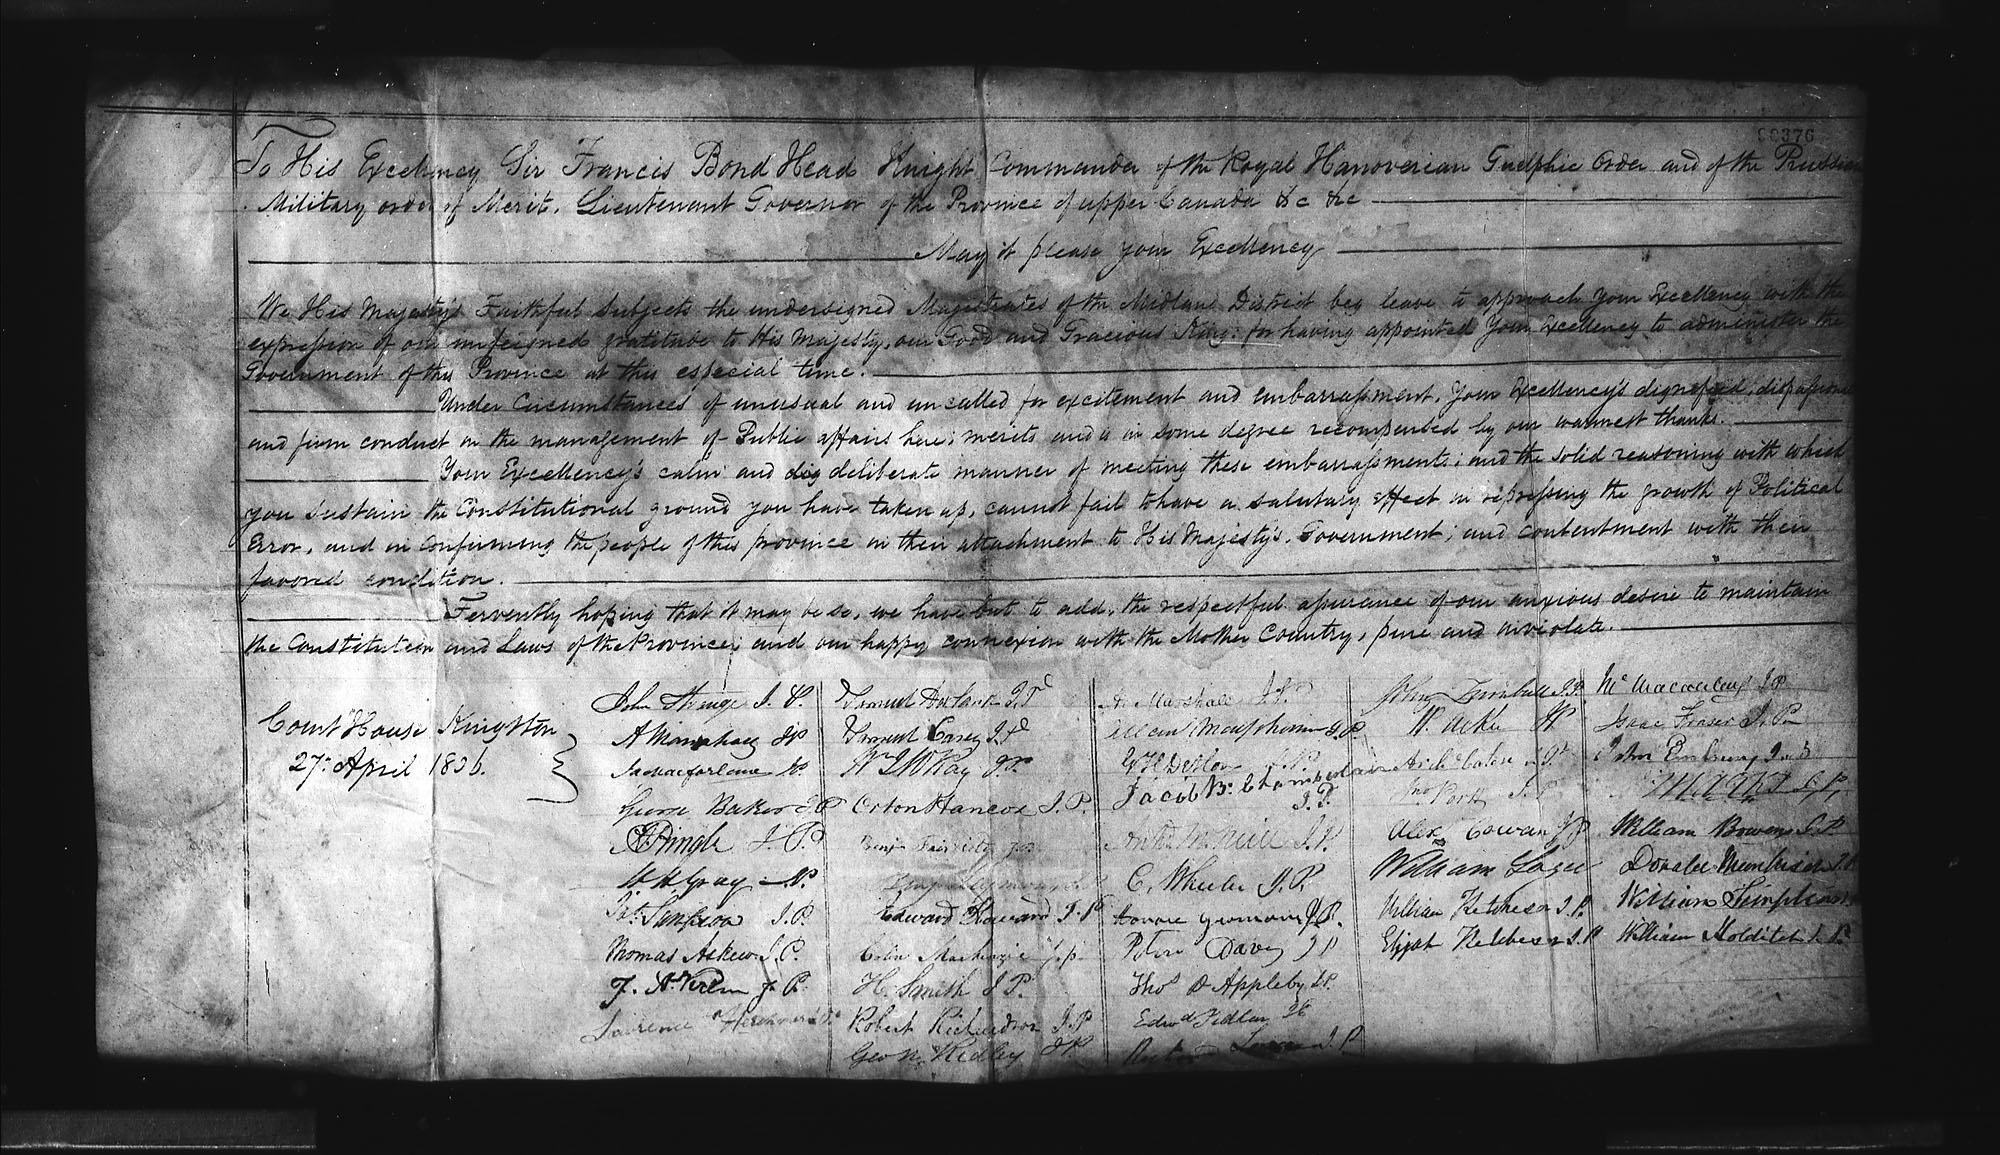 90376
To His Excellency Sir Francis Bond Head Knight Commander of the Royal Hanoverian Guelphic Order and of the Prussian
Military order of Merit, Lieutenant Governor of the Province of upper Canada &c &c
May it please your Excellency
We His Majesty's Faithful Subjects the undersigned Magistrates of the Midland District beg leave to approach Your Excellency with the
expression of our unfeigned gratitude to His Majesty, our Good and Gracious King: for having appointed Your Excellency to administer the
Government of this Province at this especial time.
Under Circumstances of unusual and uncalled for excitement and embarrassment, Your Excellency's dignified, dispassionate
and firm conduct in the management of Public affairs here; merits and is in some degree recompensed by our warmest thanks.
Your Excellency's calm and dig deliberate manner of meeting these embarrassments; and the solid reasoning with which
you sustain the Constitutional ground you have taken up, cannot fail to have a salutary effect in repressing the growth of Political
Error, and in confirming the people of this province in their attachment to His Majesty's Government; and contentment with their
favored condition.
Fervently hoping that it may be so, we have but to add, the respectful assurance of our anxious desire to maintain
the Constitution and Laws of the Province; and our happy connexion with the Mother Country, pure and inviolate.
Court House Kingston
27th April 1836.
John Strange J.P.
A Manahan JP
Macfarlane JP
George Baker JP
A Pringle J.P.
J.P.
Simpson J.P.
Thomas Askew J.P.
J.P.
Samuel J.P.
Samuel Casey J.P.
McKay J.P.
Orton Hancox J.P.
Benj Fairfield
Seymour
Edward Howard J.P.
Colin Mackenzie J.p.
H. Smith J P.
Robert Richardson J.P
Geo N. Ridley JP
A Marshall J.P.
Allan Macpherson J.P.
Jacob B. Chamberlain
J.P.
J.P.
C. Wheeler J.P.
J.P.
Peter Davy J P
Thos D Appleby J.P.
Edwd Fidlar JP
J.P.
John Turnbull J.P.
JP
J.P.
Alex Cowan JP
William
William Ketcheson J.P.
Elijah Ketcheson J.P.
J.P.
Isaac Fraser J.P.
John J.P.
J.P.
William Bowen J.P.
Donald J.P.
William Simpkins
William Holditch J.P.